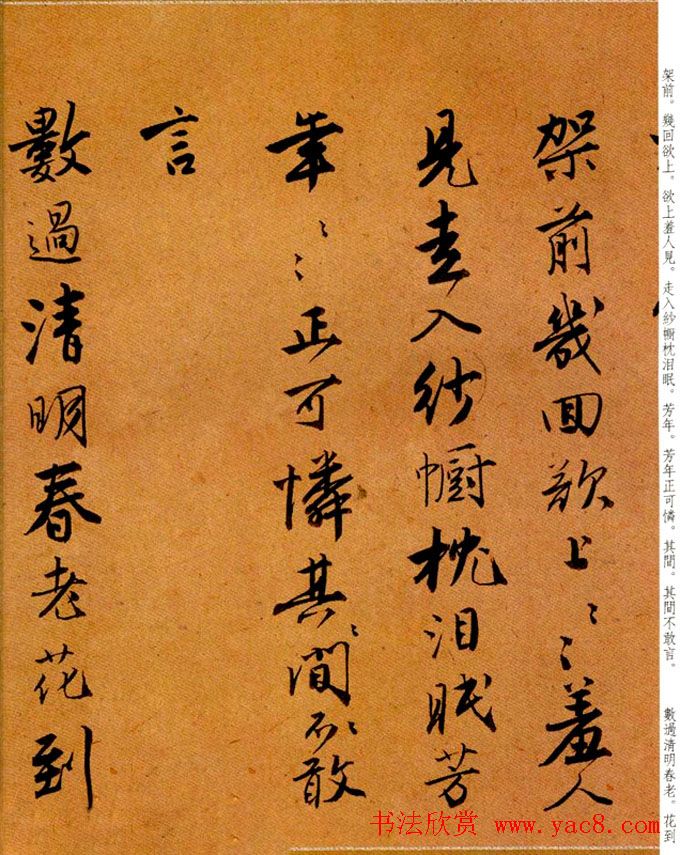 架前。幾回欲上。欲上羞人見。走入紗幮枕泪眠。芳年。芳年正可憐。其間。其間不敢言。　數過清明春老。花到
架前幾回欲上〻〻羞人
見走入紗幮枕泪眠芳
年〻〻正可憐其〻間〻不敢
言
數過清明春老花到
书法欣赏 www.yac8.com